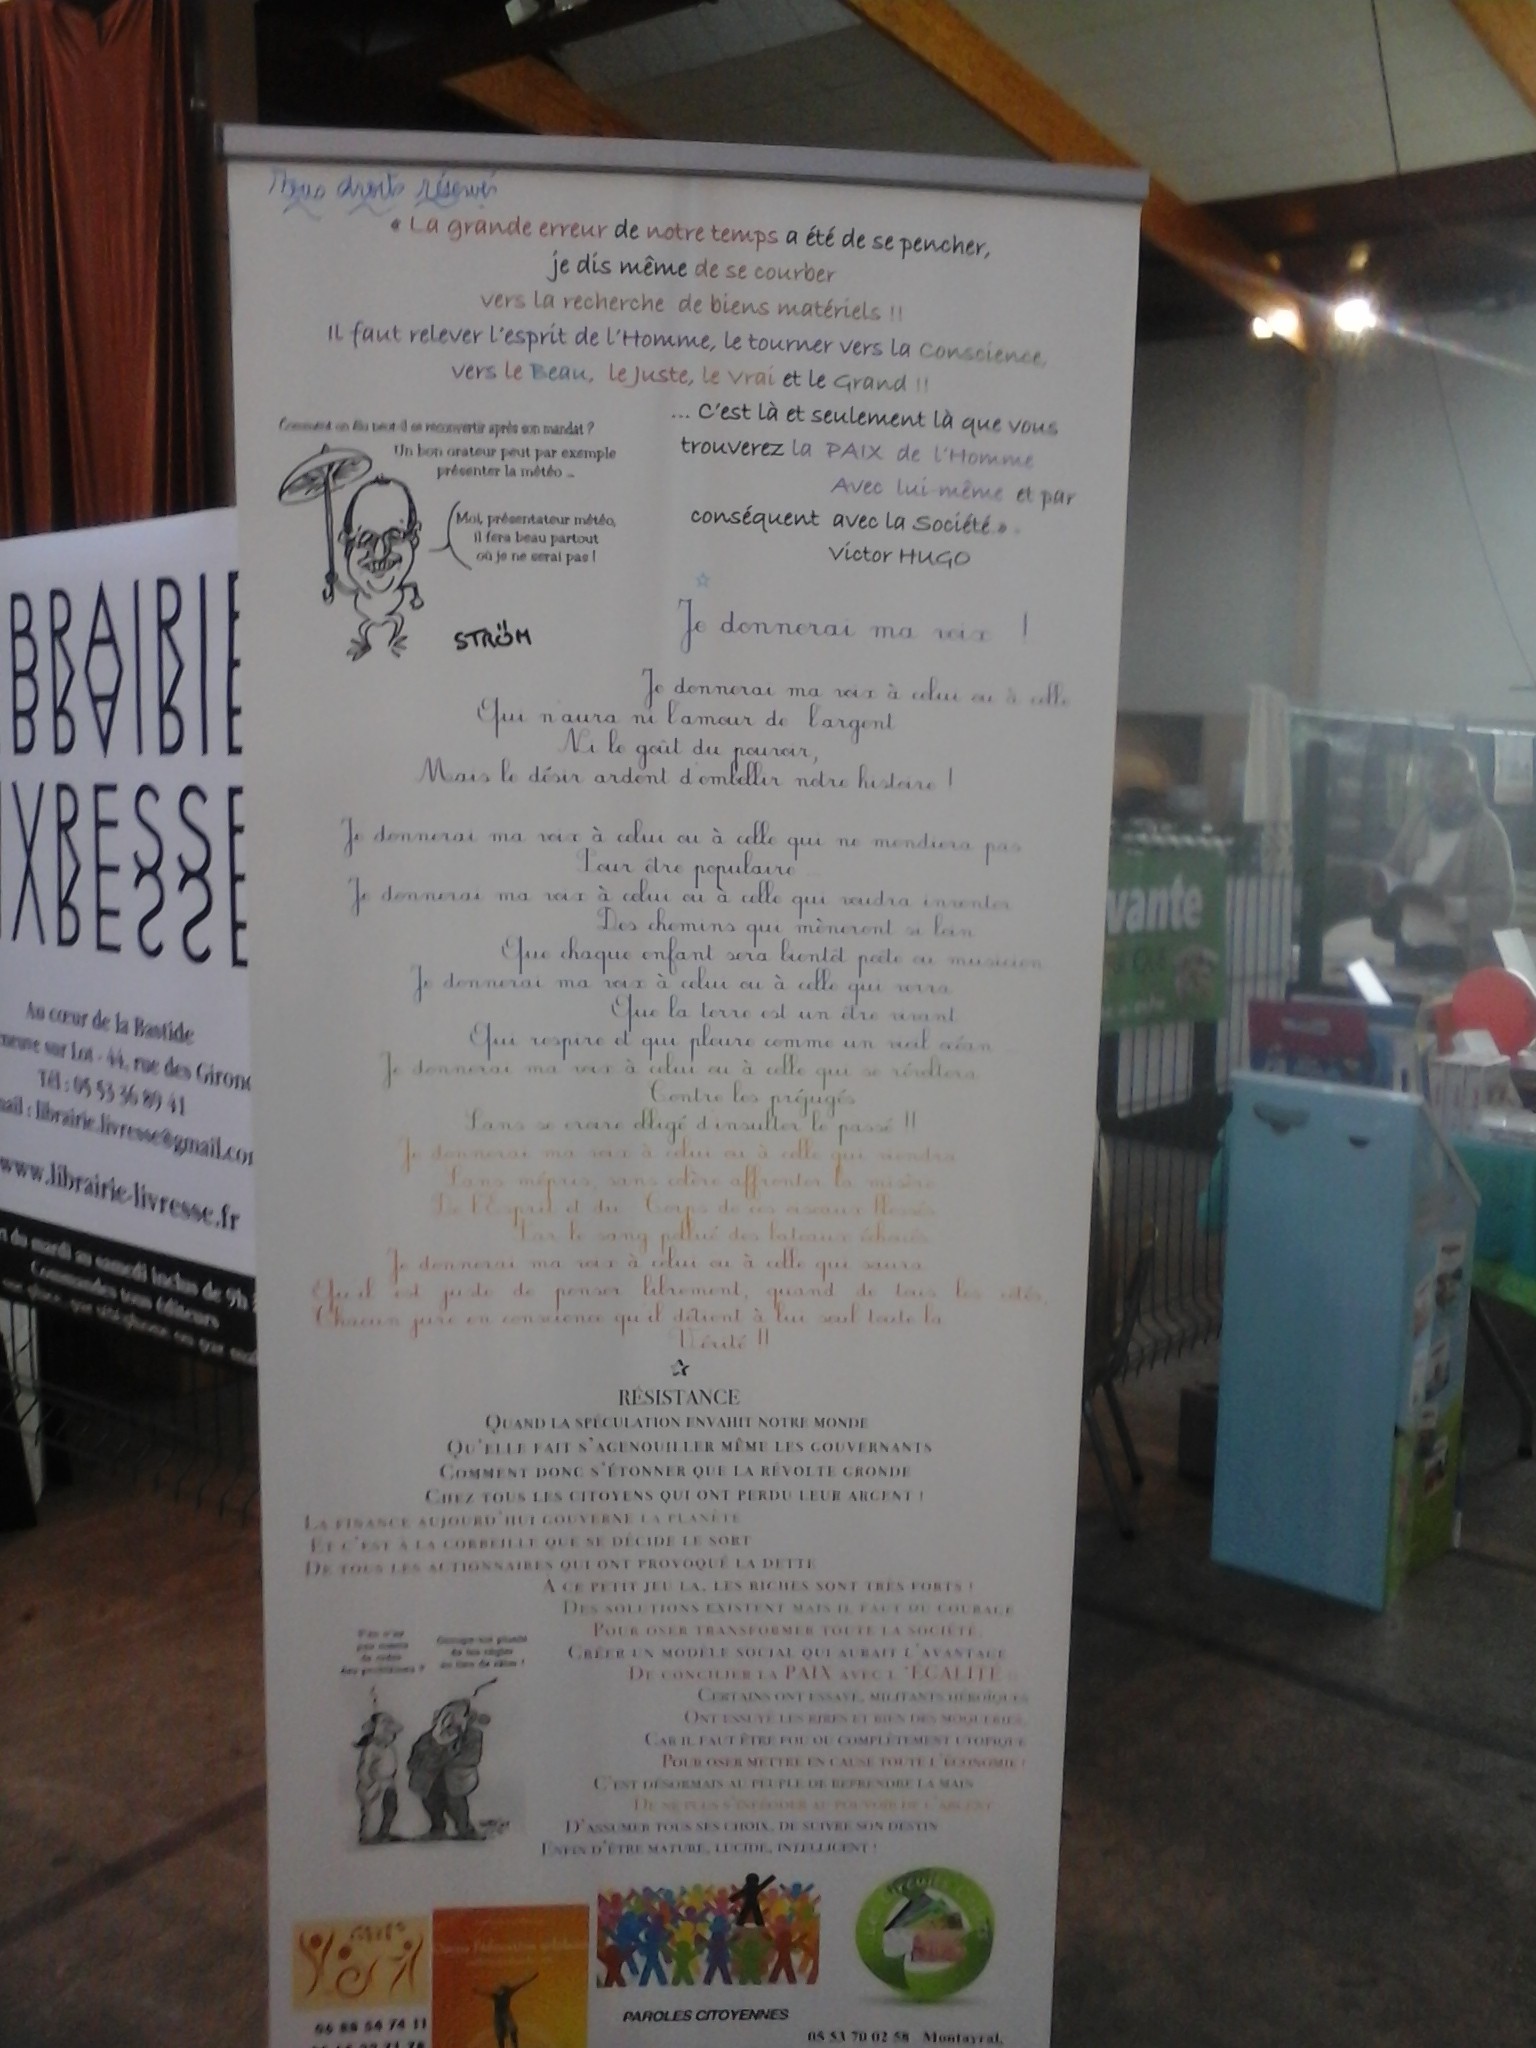 droits réservés
« La grande erreur de notre temps a été de se pencher,
je dis même de se courber
vers la recherche de biens matériels !!
Il faut relever l'esprit de l'Homme, le tourner vers la Conscience,
vers le Beau, le Juste, le Vrai et le Grand !!
... C'est là et seulement là que vous
trouverez la PAIX de l'Homme
Avec lui-même et par
conséquent avec la Société ».
Victor HUGO
Comment un élu peut-il se reconvertir après son mandat ?
Un bon orateur peut par exemple
présenter la météo ...
Moi, présentateur météo,
il fera beau partout
où je ne serai pas !
STRÖM
Je donnerai ma voix !
Je donnerai ma voix à celui ou à celle
Qui n'aura ni l'amour de l'argent
Ni le goût du pouvoir,
Mais le désir ardent d'embellir notre histoire !
Je donnerai ma voix à celui ou à celle qui ne mendiera pas
Pour être populaire
Je donnerai ma voix à celui ou à celle qui voudra inventer
Des chemins qui mèneront si loin
Que chaque enfant sera bientôt poète ou musicien
Je donnerai ma voix à celui ou à celle qui verra
Que la terre est un être vivant
Qui respire et qui pleure comme un vieil océan
Je donnerai ma voix à celui ou à celle qui se révoltera
Contre les préjugés
Sans se croire obligé d'insulter le passé !!
Je donnerai ma voix à celui ou à celle qui viendra
Sans mépris, sans colère affronter la misère
De l'Esprit et du Corps de ces oiseaux blessés
Par le sang pollué des bateaux échoués
Je donnerai ma voix à celui ou à celle qui saura
Qu'il est juste de penser librement, quand de tous les côtés,
Chacun jure en conscience qu'il détient à lui seul toute la
Vérité !!
RÉSISTANCE
QUAND LA SPÉCULATION ENVAHIT NOTRE MONDE
QU'ELLE FAIT S'AGENOUILLER MÊME LES GOUVERNANTS
COMMENT DONC S'ÉTONNER QUE LA RÉVOLTE GRONDE
CHEZ TOUS LES CITOYENS QUI ONT PERDU LEUR ARGENT !
LA FINANCE AUJOURD'HUI GOUVERNE LA PLANÈTE
ET C'EST À LA CORBEILLE QUE SE DÉCIDE LE SORT
DE TOUS LES ACTIONNAIRES QUI ONT PROVOQUÉ LA DETTE
A CE PETIT JEU LA, LES RICHES SONT TRÈS FORTS !
DES SOLUTIONS EXISTENT MAIS IL FAUT DU COURAGE
POUR OSER TRANSFORMER TOUTE LA SOCIÉTÉ
CRÉER UN MODÈLE SOCIAL QUI AURAIT L'AVANTAGE
DE CONCILIER LA PAIX AVEC L'ÉGALITÉ
CERTAINS ONT ESSAYÉ, MILITANTS HÉROÏQUES
ONT ESSUYÉ LES RIRES ET BIEN DES MOQUERIES,
CAR IL FAUT ÊTRE FOU OU COMPLÈTEMENT UTOPIQUE
POUR OSER METTRE EN CAUSE TOUTE L'ÉCONOMIE !
C'EST DÉSORMAIS AU PEUPLE DE REPRENDRE LA MAIN
DE NE PLUS S'INFÉODER AU POUVOIR DE L'ARGENT
D'ASSUMER TOUS SES CHOIX, DE SUIVRE SON DESTIN
ENFIN D'ÊTRE MATURE, LUCIDE, INTELLIGENT !
PAROLES CITOYENNES
06 88 54 74 11
05 53 70 02 58 Montayral,
BRAIRIE
IVRESSE
Au cœur de la Bastide
neuve sur Lot - 44, rue des Girond
Tél : 05 53 36 89 41
mail : librairie.livresse@gmail.com
www.librairie-livresse.fr
du mardi au samedi inclus de 9h
Commandes tous éditeurs
vante